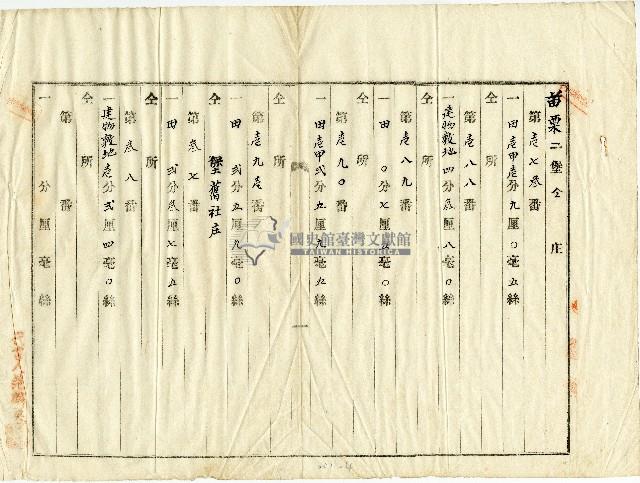 苗栗二堡仝 庄
第壱七叁番
一田壱甲壱分九厘〇毫五絲
仝 所
第壱八八番
一建物敷地四分叁厘八毫〇絲
仝 所
第壱八九番
一田 〇分七厘五毫〇絲
仝 所
第壱九〇番
一田壱甲弐分五厘九毫五絲
仝 所
第壱九壱番
一田 弐分五厘九毫〇絲
仝 堡舊社庄
第叁七番
一田 弐分叁厘七毫五絲
仝 所
第叁八番
一建物敷地壱分弐厘四毫〇絲
仝 所
第 番
一 分 厘 毫 絲
國史館臺灣文獻館
TAIWAN HISTORICA